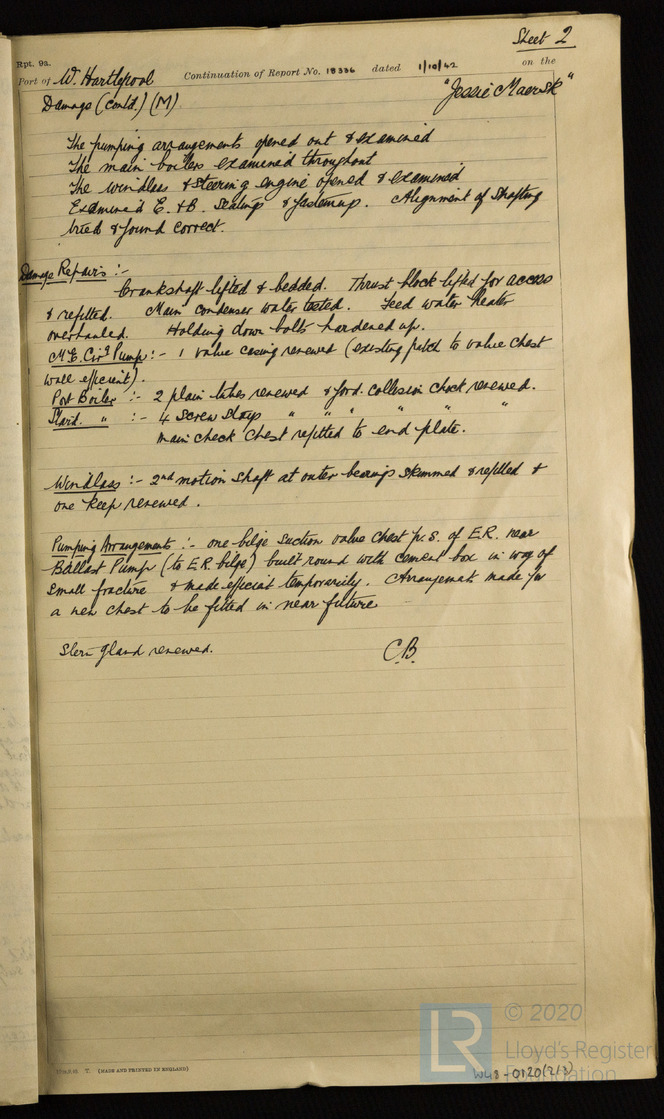 Sheet 2
Rpt. 9a.
Port of W. Hartlepool Continuation of Report No. 18336 dated 1/10/42 on the
Damage (contd.) (M) "Jessie Maersk"
The pumping arrangements opened out & examined
The main boilers examined throughout
The windlass & steering engine opened & examined
Examined E. & B. seatings & fastenings. Alignment of Shafting
tried & found correct.
Damage Repairs :-
Crankshaft lifted & bedded. Thrust block lifted for access
& refitted. Main condenser water tested. Feed water heater
overhauled. Holding down bolts hardened up.
M.E. Circg Pump :- 1 valve casing renewed (existing patch to valve chest
wall efficient).
Port Boiler :- 2 plain tubes renewed & ford. collision chock renewed.
Starbd. " :- 4 screw stays " " " " " "
main check chest refitted to end plate.
Windlass :- 2nd motion shaft at outer bearings skimmed & refitted &
one keep renewed.
Pumping Arrangements :- one bilge suction valve chest p.s. of E.R. near
Ballast Pump (to E.R. bilge) built round with cement box in way of
small fracture & made efficient temporarily. Arrangement made for
a new chest to be fitted in near future
Stern gland renewed. C.B.
T. (MADE AND PRINTED IN ENGLAND)
W48-0120(2/3)
LR
© 2020
Lloyd's Register
Foundation